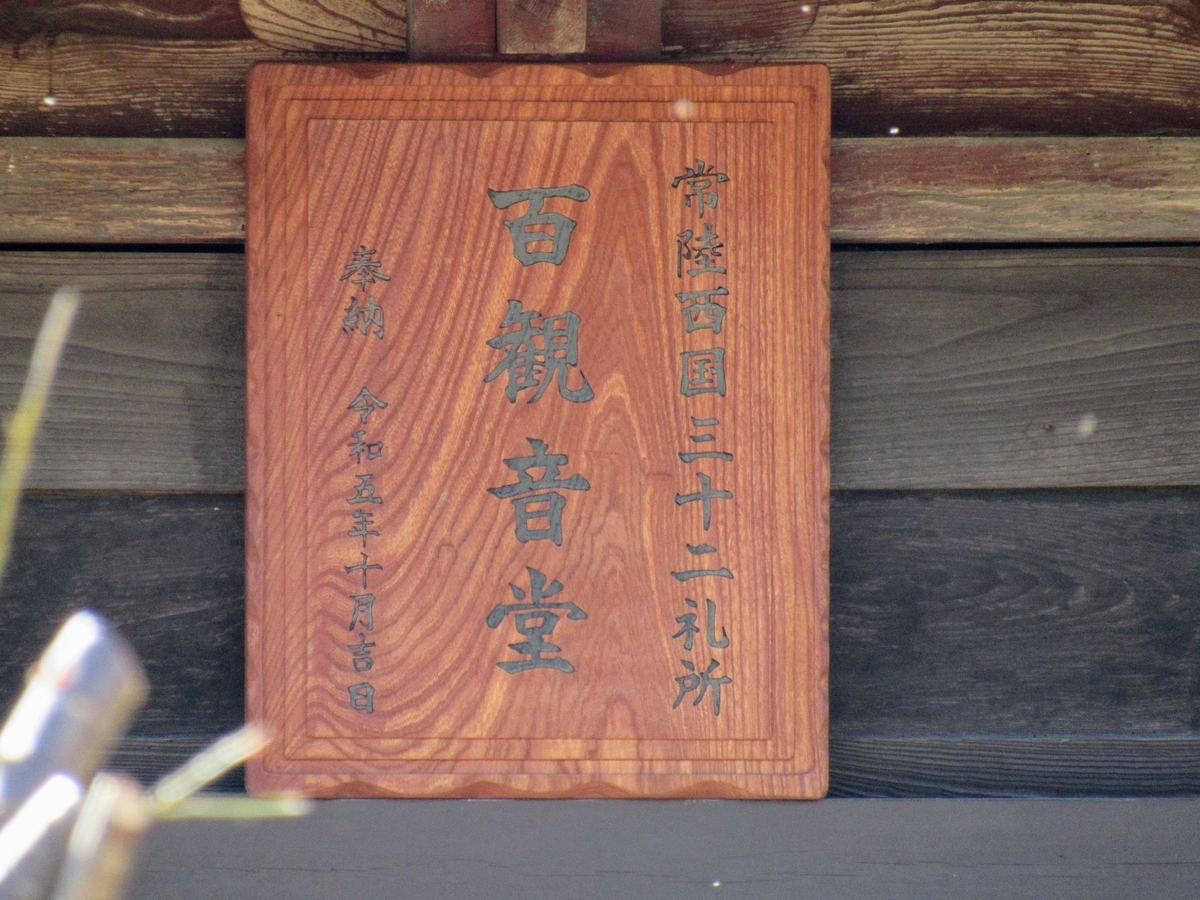 常陸西国三十二礼所
百観音堂
奉納 令和五年十月吉日